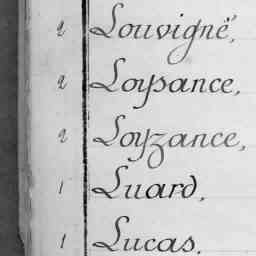 2 Louvigné,
2 Loysance,
2 Loyzance,
1 Luard,
1 Lucas.